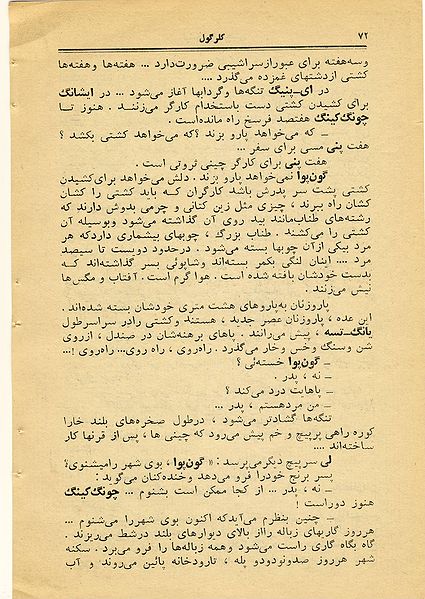 ۷۲
کلرگول
وسه‌هفته برای عبورازسراشیبی ضرورت‌دارد ... هفته‌ها وهفته‌ها
کشتی ازدشتهای غمزده می‌گذرد ....
در ای‌ـ‌پنیگ تنگه‌ها وگردابها آغاز می‌شود ... در ایشانگ
برای کشیدن کشتی دست باستخدام کارگر می‌زنند . هنوز تا
چونگ‌کینگ هفتصد فرسخ راه مانده‌است .
ـ که می‌خواهد پارو بزند ؟که می‌خواهد کشتی بکشد ؟
هفت پنی مسی برای سفر ...
هفت پنی برای کارگر چینی ثروتی است .
گون‌بوا نمی‌خواهد پارو بزند . دلش می‌خواهد برای‌کشیدن
کشتی پشت سر پدرش باشد کارگران کـه باید کشتی را کشان
کشان راه ببرند ، چیزی مثل زین کتانی و چرمی بدوش دارند که
رشته‌های طناب‌مانند بید روی آن گذاشته می‌شود وبوسیله آن
کشتی را می‌کشند . طناب بزرگ ، چوبهای بیشماری داردکه هر
مرد بیکی ازآن چوبها بسته می‌شود . درحدود دویست تا سیصد
مرد .... اینان لنگی بکمر بسته‌اند وشاپوئی بسر گذاشته‌اند کـه
بدست خودشان بافته شده است . هوا گرم است . آفتاب و مگس‌ها
نیش می‌زنند .
پاروزنان به‌پاروهای هشت متری خودشان بسته شده‌اند .
این عده ، پاروزنان عصر جدید ، هستند وکشتی رادر سراسرطول
یانگ‌ـ‌تسه ، پیش می‌رانند . پاهای برهنه‌شان در صندل ، ازروی
شن وسنگ وخس وخار می‌گذرد . راه‌روی ، راه روی... راه‌روی !...
ـ گون‌بوا خسته‌ئی ؟
ـ نه ، پدر .
ـ پاهایت درد می‌کند ؟
ـ من مردهستم ، پدر ...
تنگه‌ها گشادتر می‌شود ، درطول صخره‌های بلند خارا
کوره راهی پرپیچ و خم پیش می‌رود که چینی ها ، پس از قرنها کار
ساخته‌اند ....
لی سرپیچ دیگرمی‌پرسد : « گون‌بوا ، بوی شهر رامیشنوی؟
پسر برنج خودرا فرو می‌دهد وخنده‌کنان می‌گوید :
ـ نه ، پدر ... از کجا ممکن است بشنوم ... چونگ‌کینگ
هنوز دوراست !
ـ چنین بنظرم می‌آیدکه اکنون بوی شهررا می‌شنوم ...
هرروز گاریهای زباله رااز بالای دیوارهای بلند درشط می‌ریزند .
گاه بگاه گاری راست می‌شود وهمه زباله‌ها را فرو می‌برد . سکنه
شهر هرروز صدونودودو پله ، تارودخانه پائین می‌روند و آب